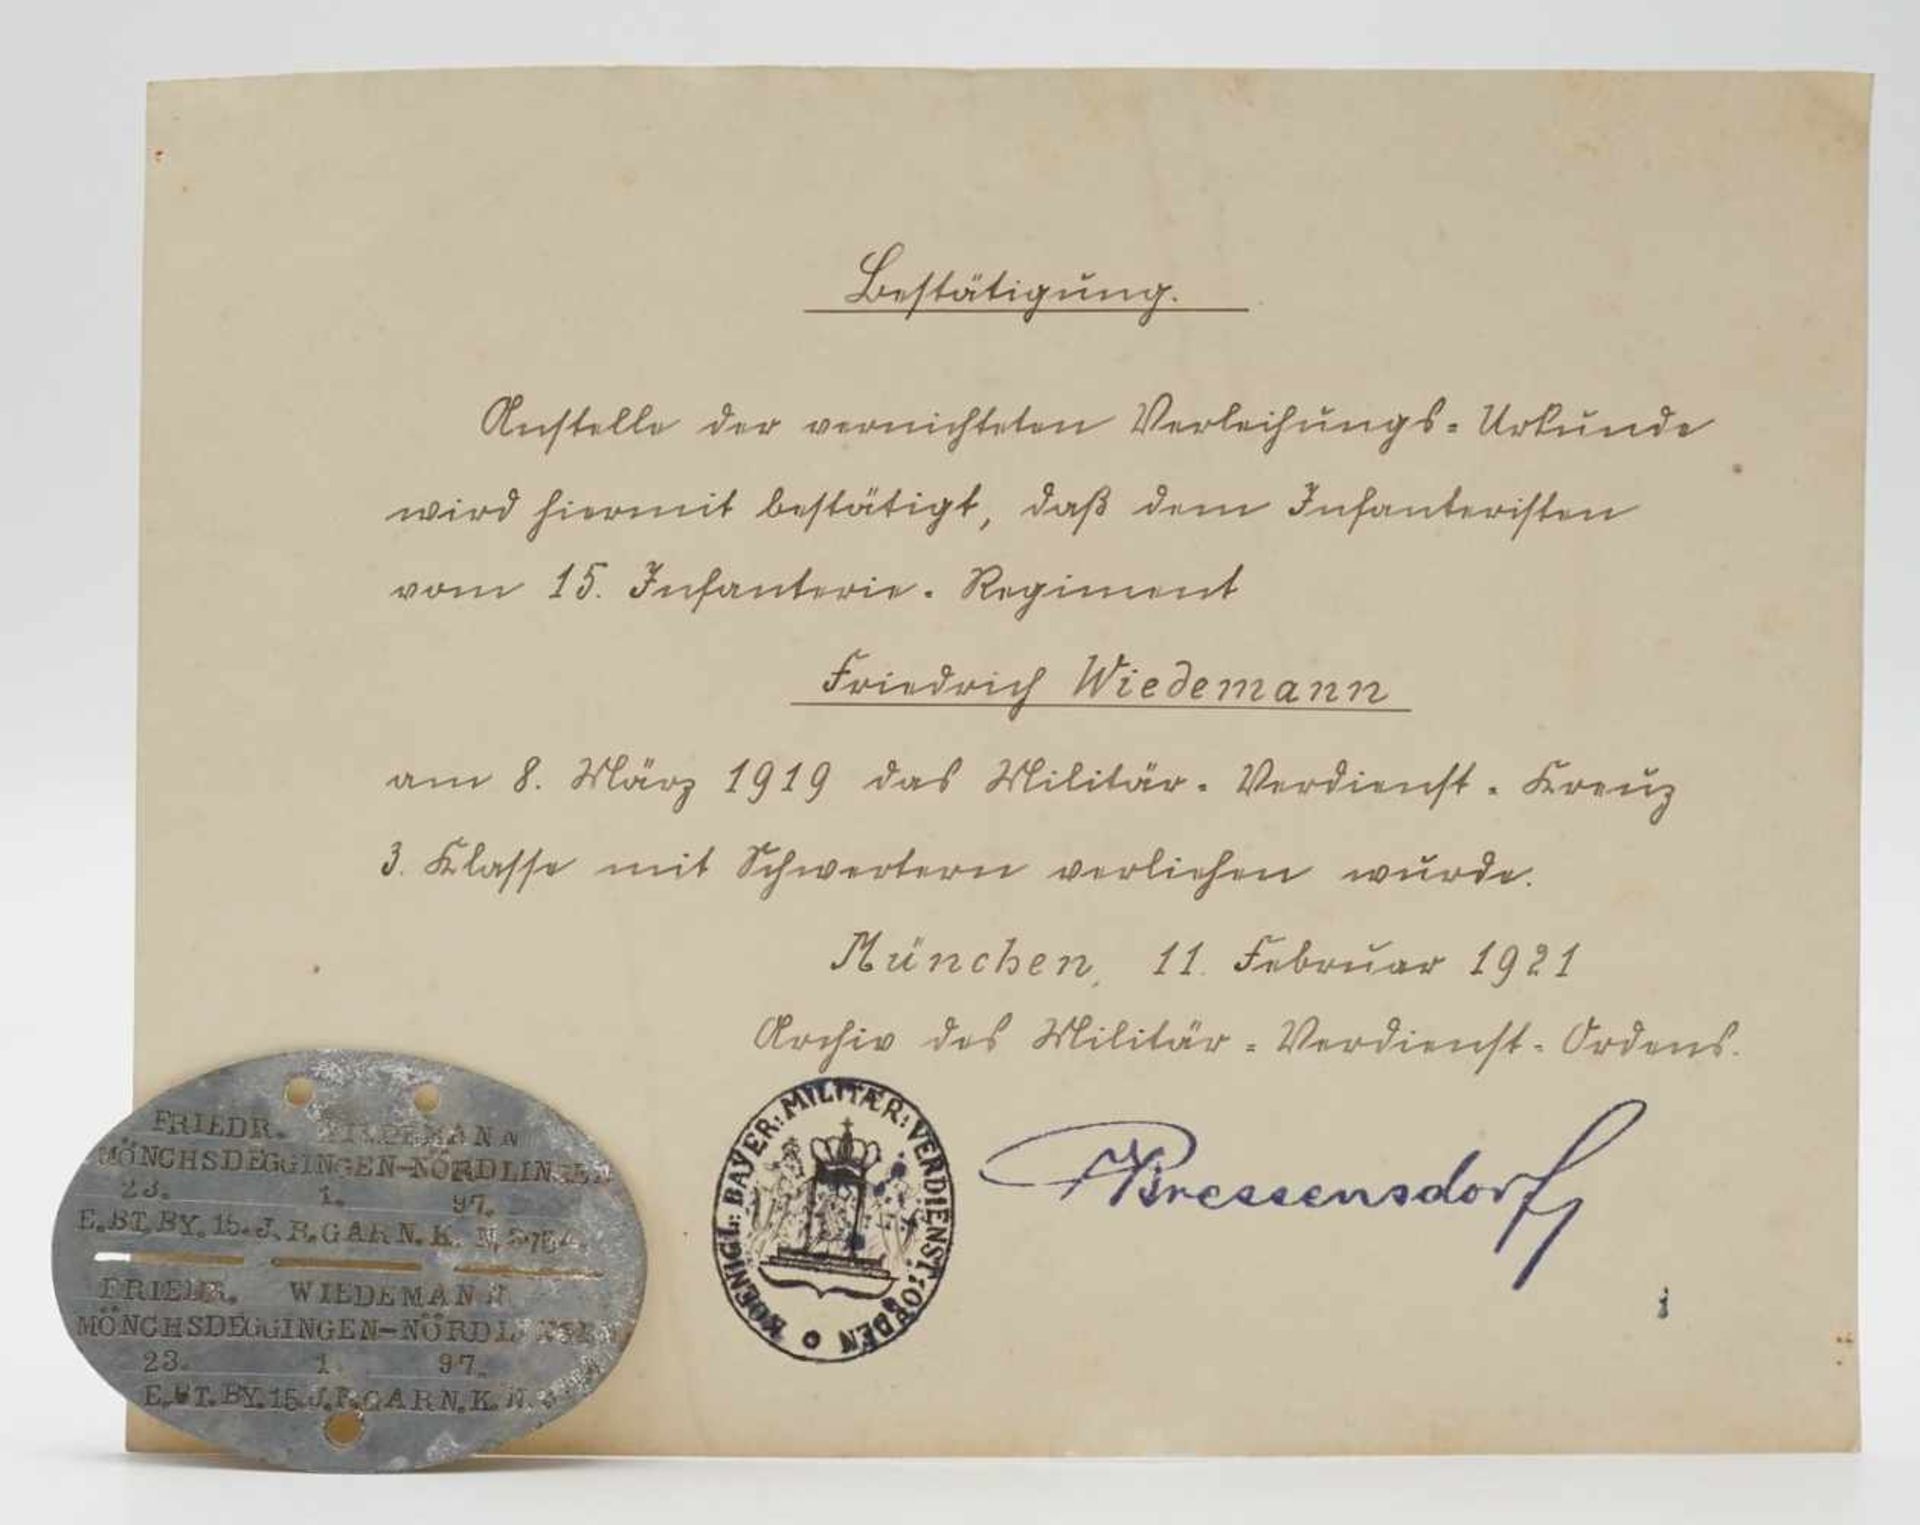 Bestätigung.
Anstelle der vernichteten Verleihungs-Urkunde
wird hiermit bestätigt, daß dem Infanteristen
vom 15. Infanterie-Regiment
Friedrich Wiedemann
am 8. März 1919 das Militär-Verdienst-Kreuz
3. Klasse mit Schwertern verliehen wurde.
München, 11. Februar 1921
Archiv des Militär-Verdienst-Ordens.
KOENIGL: BAYER: MILITÆR: VERDIENST: ORDEN
Bressensdorf
FRIEDR. WIEDEMANN
MÖNCHSDEGGINGEN-NÖRDLINGEN
23. 1. 97.
E.BT.BY.15.J.R.GARN.K. N.
FRIEDR. WIEDEMANN
MÖNCHSDEGGINGEN-NÖRDLINGEN
23. 1. 97.
E.BT.BY.15.J.R.GARN.K.N.